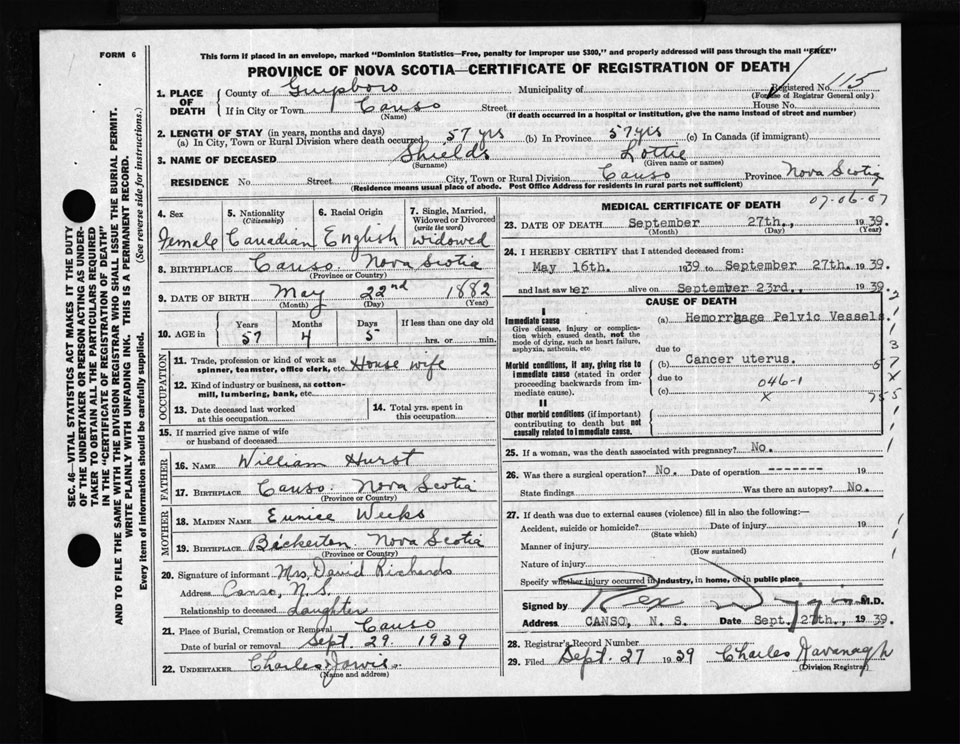 FORM 6
This form if placed in an envelope, marked "Dominion Statistics—Free, penalty for improper use $300," and properly addressed will pass through the mail "FREE"
PROVINCE OF NOVA SCOTIA—CERTIFICATE OF REGISTRATION OF DEATH
SEC. 46—VITAL STATISTICS ACT MAKES IT THE DUTY
OF THE UNDERTAKER OR PERSON ACTING AS UNDER-
TAKER TO OBTAIN ALL THE PARTICULARS REQUIRED
IN THE "CERTIFICATE OF REGISTRATION OF DEATH"
AND TO FILE THE SAME WITH THE DIVISION REGISTRAR WHO SHALL ISSUE THE BURIAL PERMIT.
WRITE PLAINLY WITH UNFADING INK. THIS IS A PERMANENT RECORD.
Every item of information should be carefully supplied. (See reverse side for instructions.)
1. PLACE OF DEATH
County of Guysboro Municipality of Registered No. 115
(For use of Registrar General only)
If in City or Town Canso Street House No.
(Name) (If death occurred in a hospital or institution, give the name instead of street and number)
2. LENGTH OF STAY (in years, months and days)
(a) In City, Town or Rural Division where death occurred 57 yrs (b) In Province 57 yrs (c) In Canada (if immigrant)
3. NAME OF DECEASED Shields Lottie
(Surname) (Given name or names)
RESIDENCE No. Street City, Town or Rural Division Canso Province Nova Scotia
(Residence means usual place of abode. Post Office Address for residents in rural parts not sufficient)
4. Sex Female
5. Nationality (Citizenship) Canadian
6. Racial Origin English
7. Single, Married, Widowed or Divorced (write the word) widowed
8. BIRTHPLACE Canso. Nova Scotia
(Province or Country)
9. DATE OF BIRTH May 22nd 1882
(Month) (Day) (Year)
10. AGE in Years 57 Months 4 Days 5 If less than one day old hrs. or min.
OCCUPATION
11. Trade, profession or kind of work as
spinner, teamster, office clerk, etc. House wife
12. Kind of industry or business, as cotton-
mill, lumbering, bank, etc.
13. Date deceased last worked
at this occupation
14. Total yrs. spent in
this occupation
15. If married give name of wife
or husband of deceased
FATHER
16. NAME William Hurst
17. BIRTHPLACE Canso. Nova Scotia
(Province or Country)
MOTHER
18. MAIDEN NAME Eunice Weeks
19. BIRTHPLACE Bickerton. Nova Scotia
(Province or Country)
20. Signature of informant Mrs. David Richards
Address Canso, N.S.
Relationship to deceased Daughter
21. Place of Burial, Cremation or Removal Canso
Date of burial or removal Sept. 29. 1939
22. UNDERTAKER Charles Jarvis.
(Name and address)
MEDICAL CERTIFICATE OF DEATH 07-06-07
23. DATE OF DEATH September 27th., 1939.
(Month) (Day) (Year)
24. I HEREBY CERTIFY that I attended deceased from:
May 16th. 1939 to September 27th. 1939.
and last saw her alive on September 23rd., 1939.
CAUSE OF DEATH
I
Immediate cause
Give disease, injury or complica-
tion which caused death, not the
mode of dying, such as heart failure,
asphyxia, asthenia, etc
(a) Hemorrhage Pelvic Vessels.
due to
Morbid conditions, if any, giving rise to
immediate cause (stated in order
proceeding backwards from im-
mediate cause).
(b) Cancer uterus.
due to
(c) 046-1
x
II
Other morbid conditions (if important)
contributing to death but not
causally related to immediate cause.
25. If a woman, was the death associated with pregnancy? No.
26. Was there a surgical operation? No. Date of operation -------- 19
State findings Was there an autopsy? No.
27. If death was due to external causes (violence) fill in also the following:—
Accident, suicide or homicide? Date of injury 19
(State which)
Manner of injury
(How sustained)
Nature of injury
Specify whether injury occurred in industry, in home, or in public place
Signed by Rex M.D.
Address CANSO, N. S. Date Sept. 27th., 1939.
28. Registrar's Record Number
29. Filed Sept. 27 1939 Charles Kavanagh
(Division Registrar)